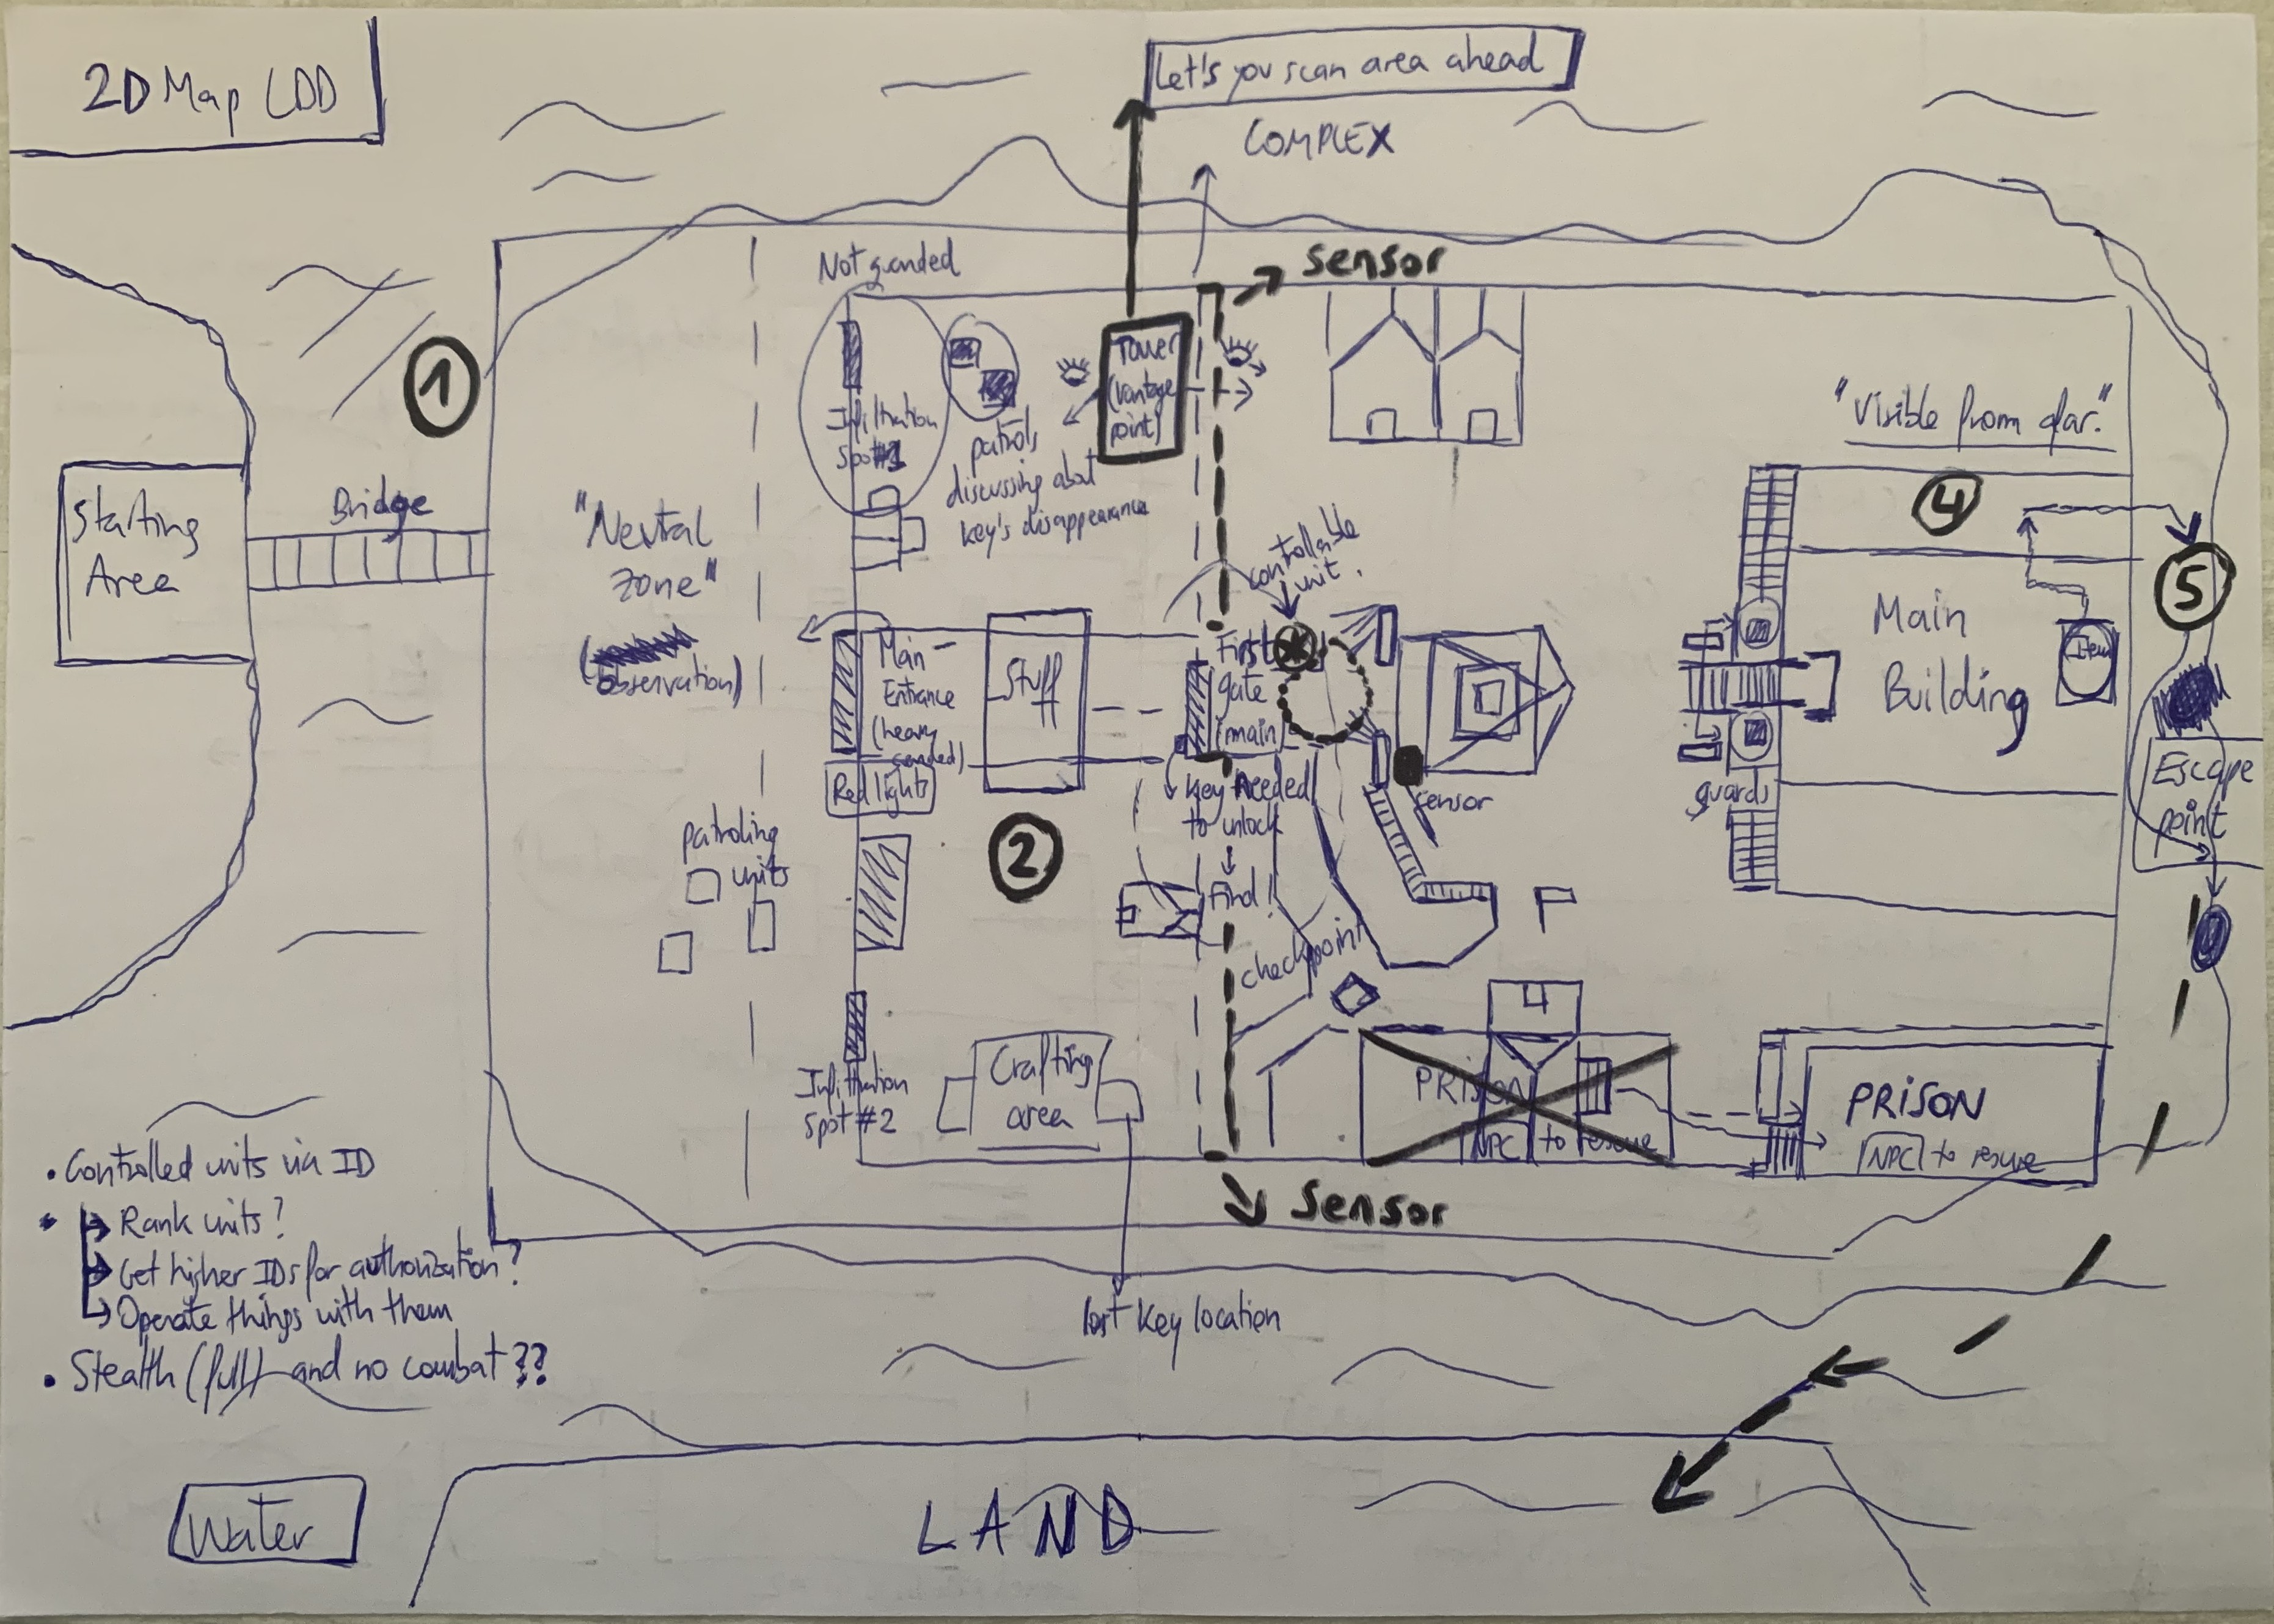 2D Map LDD
Let's you scan area ahead
COMPLEX
sensor
Not guarded
1
Tower
(vantage
point)
Infiltration
Spot#1
patrols
discussing about
key's disappearance
"Visible from afar."
4
Starting
Area
Bridge
"Neutral
zone"
(observation)
controllable
unit.
5
Main
Building
Item
Main
Entrance
(heavy
guarded)
Red lights
Stuff
First
gate
(main)
Key Needed
to unlock
Find!
sensor
guards
Escape
point
patroling
units
2
checkpoint
Infiltration
Spot #2
Crafting
area
4
PRISON
NPC to rescue
PRISON
NPC to rescue
sensor
• Controlled units via ID
Rank units?
Get higher IDs for authorization?
Operate things with them
• Stealth (full) and no combat??
key location
Water
LAND